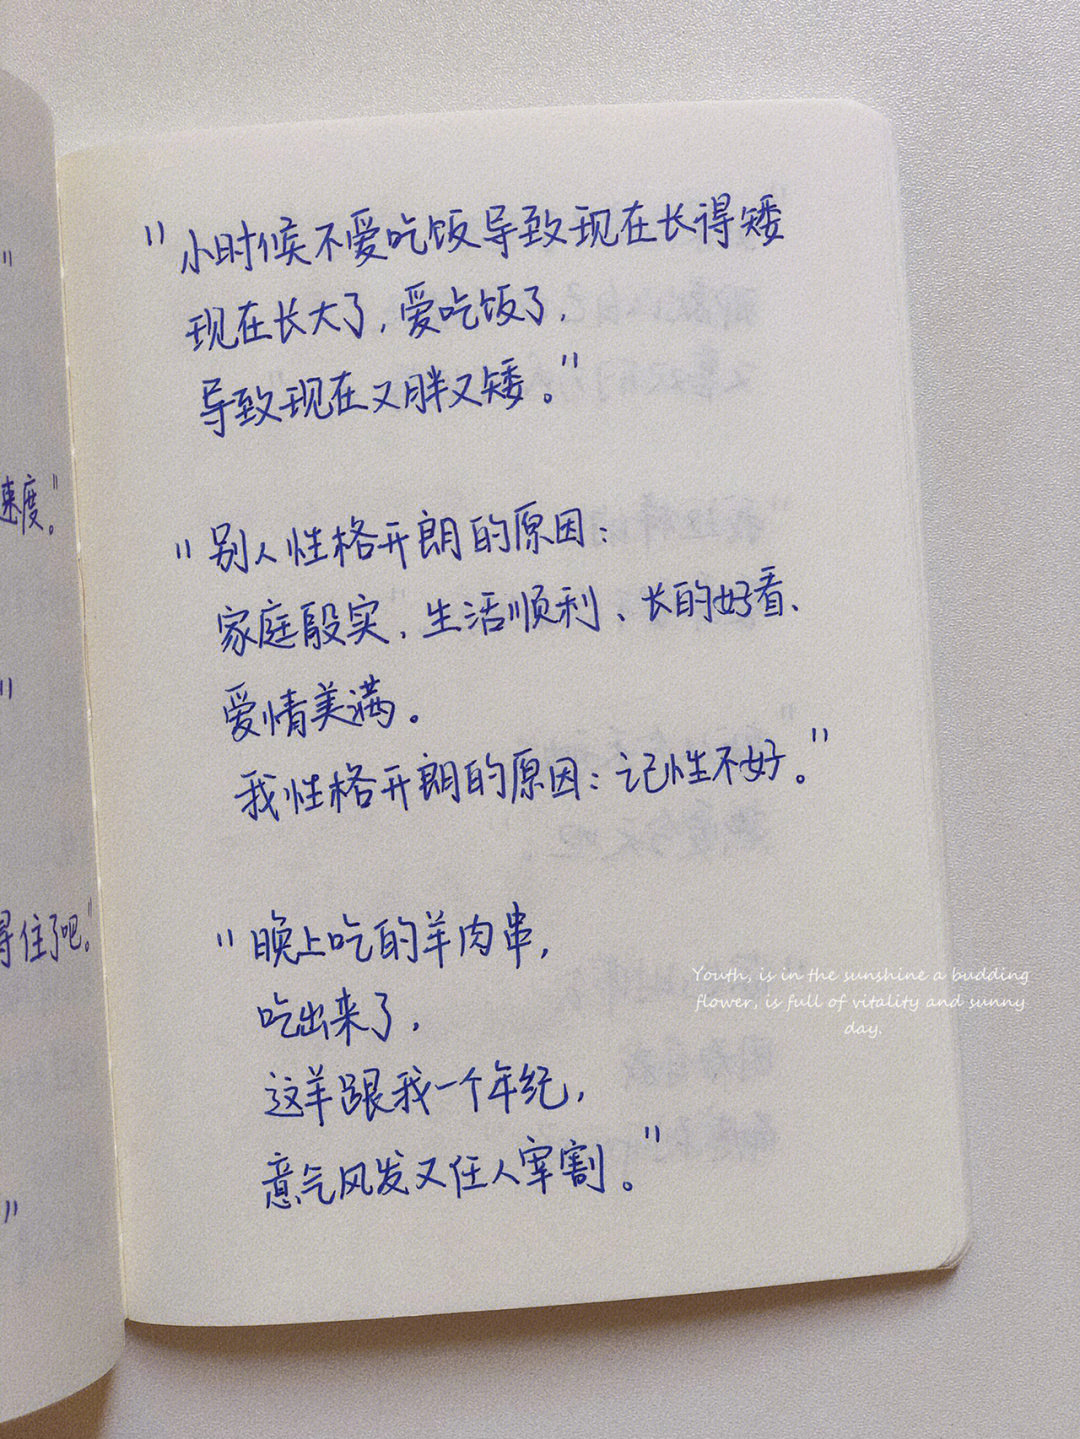 "小时候不爱吃饭导致现在长得矮
现在长大了,爱吃饭了,
导致现在又胖又矮。"
"别人性格开朗的原因:
家庭殷实、生活顺利、长的好看、
爱情美满。
我性格开朗的原因:记性不好。"
"晚上吃的羊肉串,
吃出来了,
这羊跟我一个年纪,
意气风发又任人宰割。"
速度。"
得住了吧。"
Youth, is in the sunshine a budding
flower, is full of vitality and sunny
day.